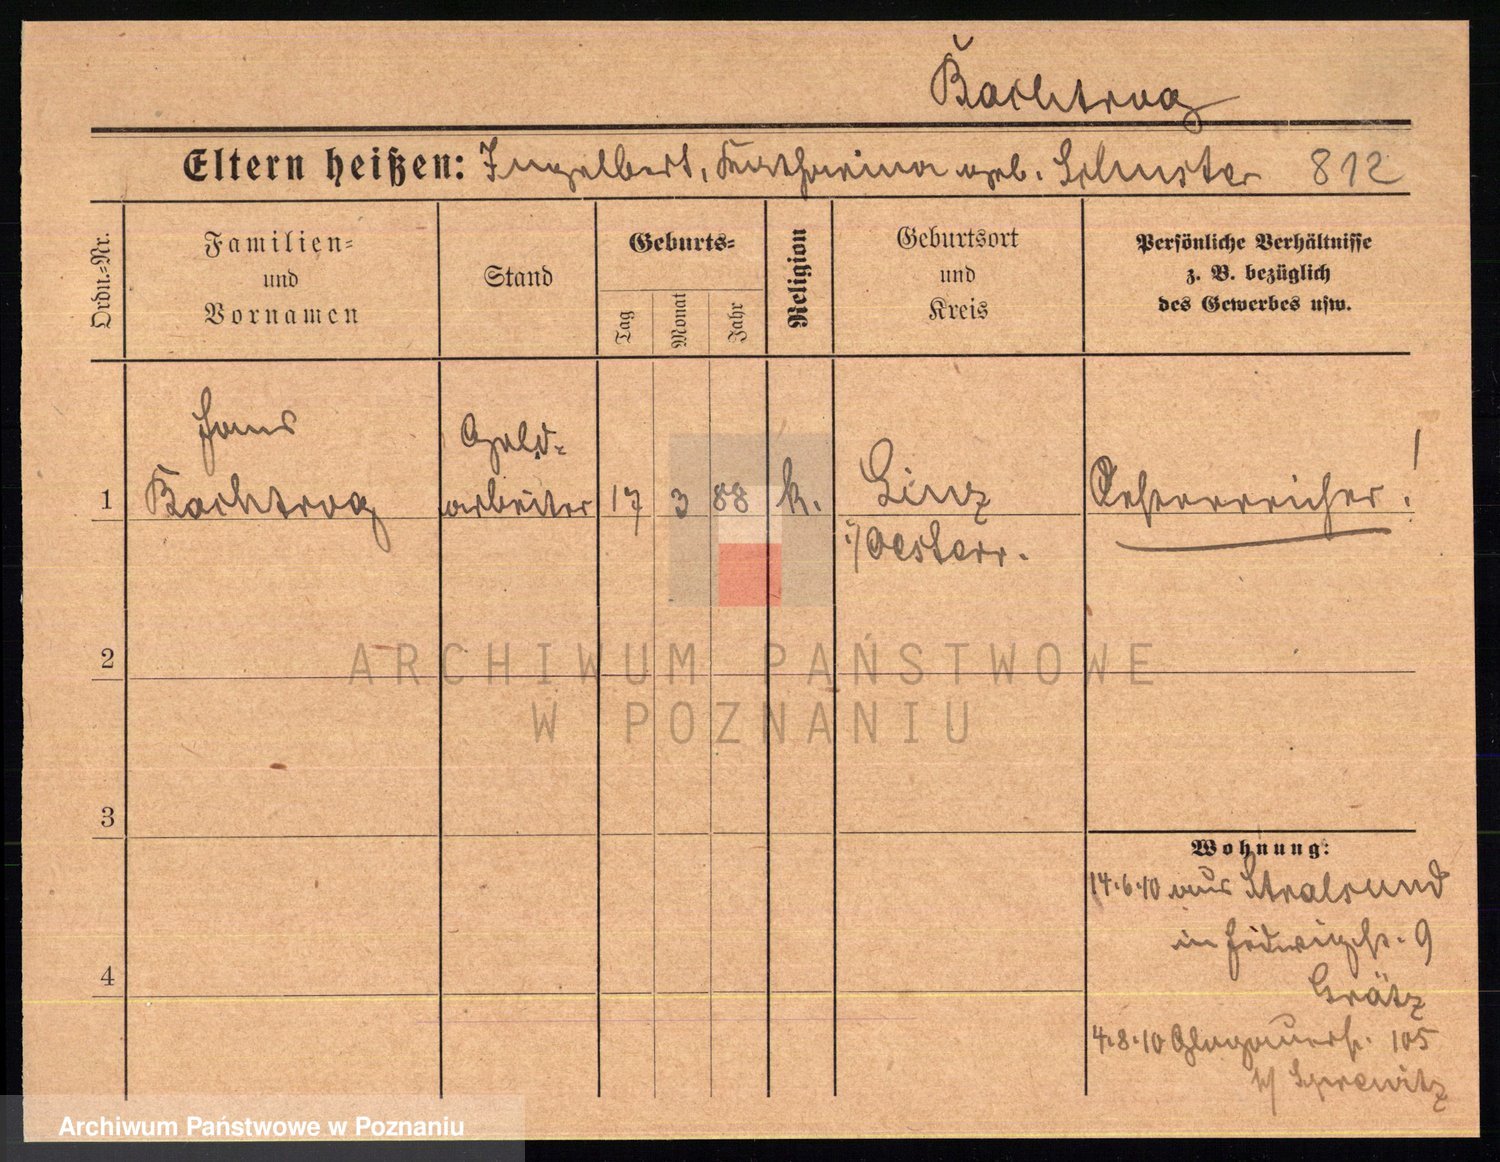 Bachtrog
Eltern heißen: Ingelbert, Katharina geb. Schuster 812
Ordn.=Nr.
Familien=
und
Vornamen
Stand
Geburts=
Tag
Monat
Jahr
Religion
Geburtsort
und
Kreis
Persönliche Verhältnisse
z. B. bezüglich
des Gewerbes usw.
Hans
Gold-
1 Bachtrog arbeiter 17 3 88 k. Linz Oesterreicher!
i/ Oesterr.
2
ARCHIWUM PAŃSTWOWE
W POZNANIU
3
Wohnung:
14.6.10 aus Stralsund
in Hedwigstr. 9
4
Grätz
4.8.10 Glogauerstr. 105
Archiwum Państwowe w Poznaniu